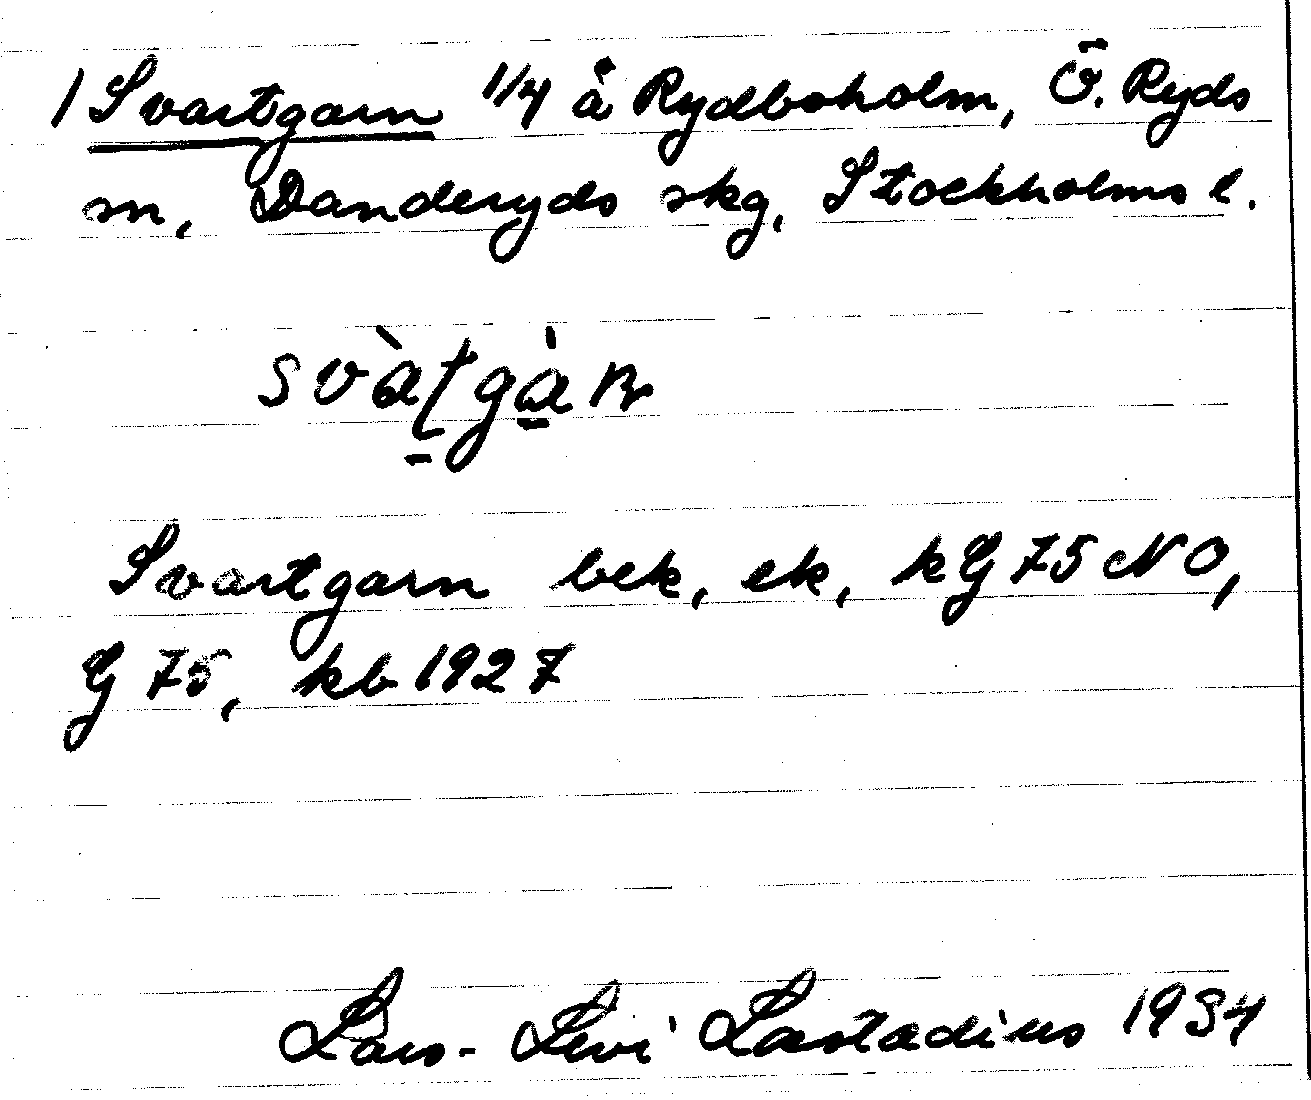 1 Svartgarn 1/4 å Rydboholm, Ö. Ryds
sn, Danderyds skg, Stockholms l.
svàʈgàɳ
Svartgarn bek, ek, kG 75 NO,
G 75, kb 1927
Lars-Levi Læstadius 1934